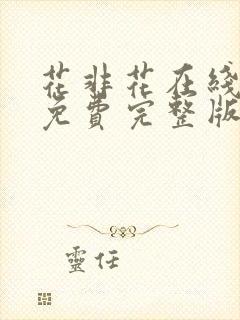 花非花在线
免費完整版
靈任